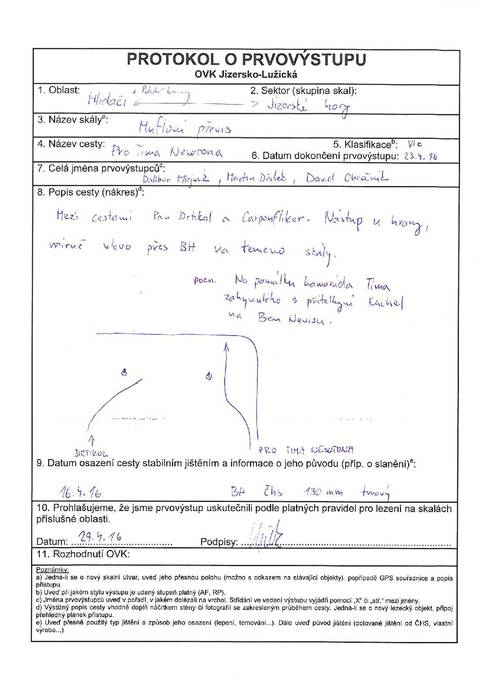 PROTOKOL O PRVOVÝSTUPU
OVK Jizersko-Lužická
1. Oblast: Hlídači 2. Sektor (skupina skal):
Jizerské hory
3. Název skályª: Mufloní převis
4. Název cesty: Pro Tima Newtona 5. Klasifikaceᵇ: VIc
6. Datum dokončení prvovýstupu: 23.4.16
7. Celá jména prvovýstupcůᶜ:
Dalibor , Martin , David
8. Popis cesty (nákres)ᵈ:
Mezi cestami Pan Drtikol a Carpenfliker. Nástup u hrany,
mírně vlevo přes BH na temeno skály.
pozn. Na památku kamaráda Tima
zahynulého s přítelkyní Rachel
na Ben Nevisu.
DRTIKOL
PRO TIMA NEWTONA
9. Datum osazení cesty stabilním jištěním a informace o jeho původu (příp. o slanění)ᵉ:
16.4.16 BH čhs 130 mm tmavý
10. Prohlašujeme, že jsme prvovýstup uskutečnili podle platných pravidel pro lezení na skalách
příslušné oblasti.
Datum: 29.4.16 Podpisy:
11. Rozhodnutí OVK:
Poznámky:
a) Jedná-li se o nový skalní útvar, uveď jeho přesnou polohu (možno s odkazem na stávající objekty). popřípadě GPS souřadnice a popis
přístupu.
b) Uveď při jakém stylu výstupu je udaný stupeň platný (AF, RP).
c) Jména prvovýstupců uveď v pořadí, v jakém dolézali na vrchol. Střídání ve vedení výstupu vyjádři pomocí „X" či „stř." mezi jmény.
d) Výstižný popis cesty vhodně doplň náčrtkem stěny či fotografií se zakresleným průběhem cesty. Jedná-li se o nový lezecký objekt, připoj
přehledný plánek přístupu.
e) Uveď přesně použitý typ jištění a způsob jeho osazení (lepení, temování...). Dále uveď původ jištění (dotované jištění od ČHS, vlastní
výroba...)